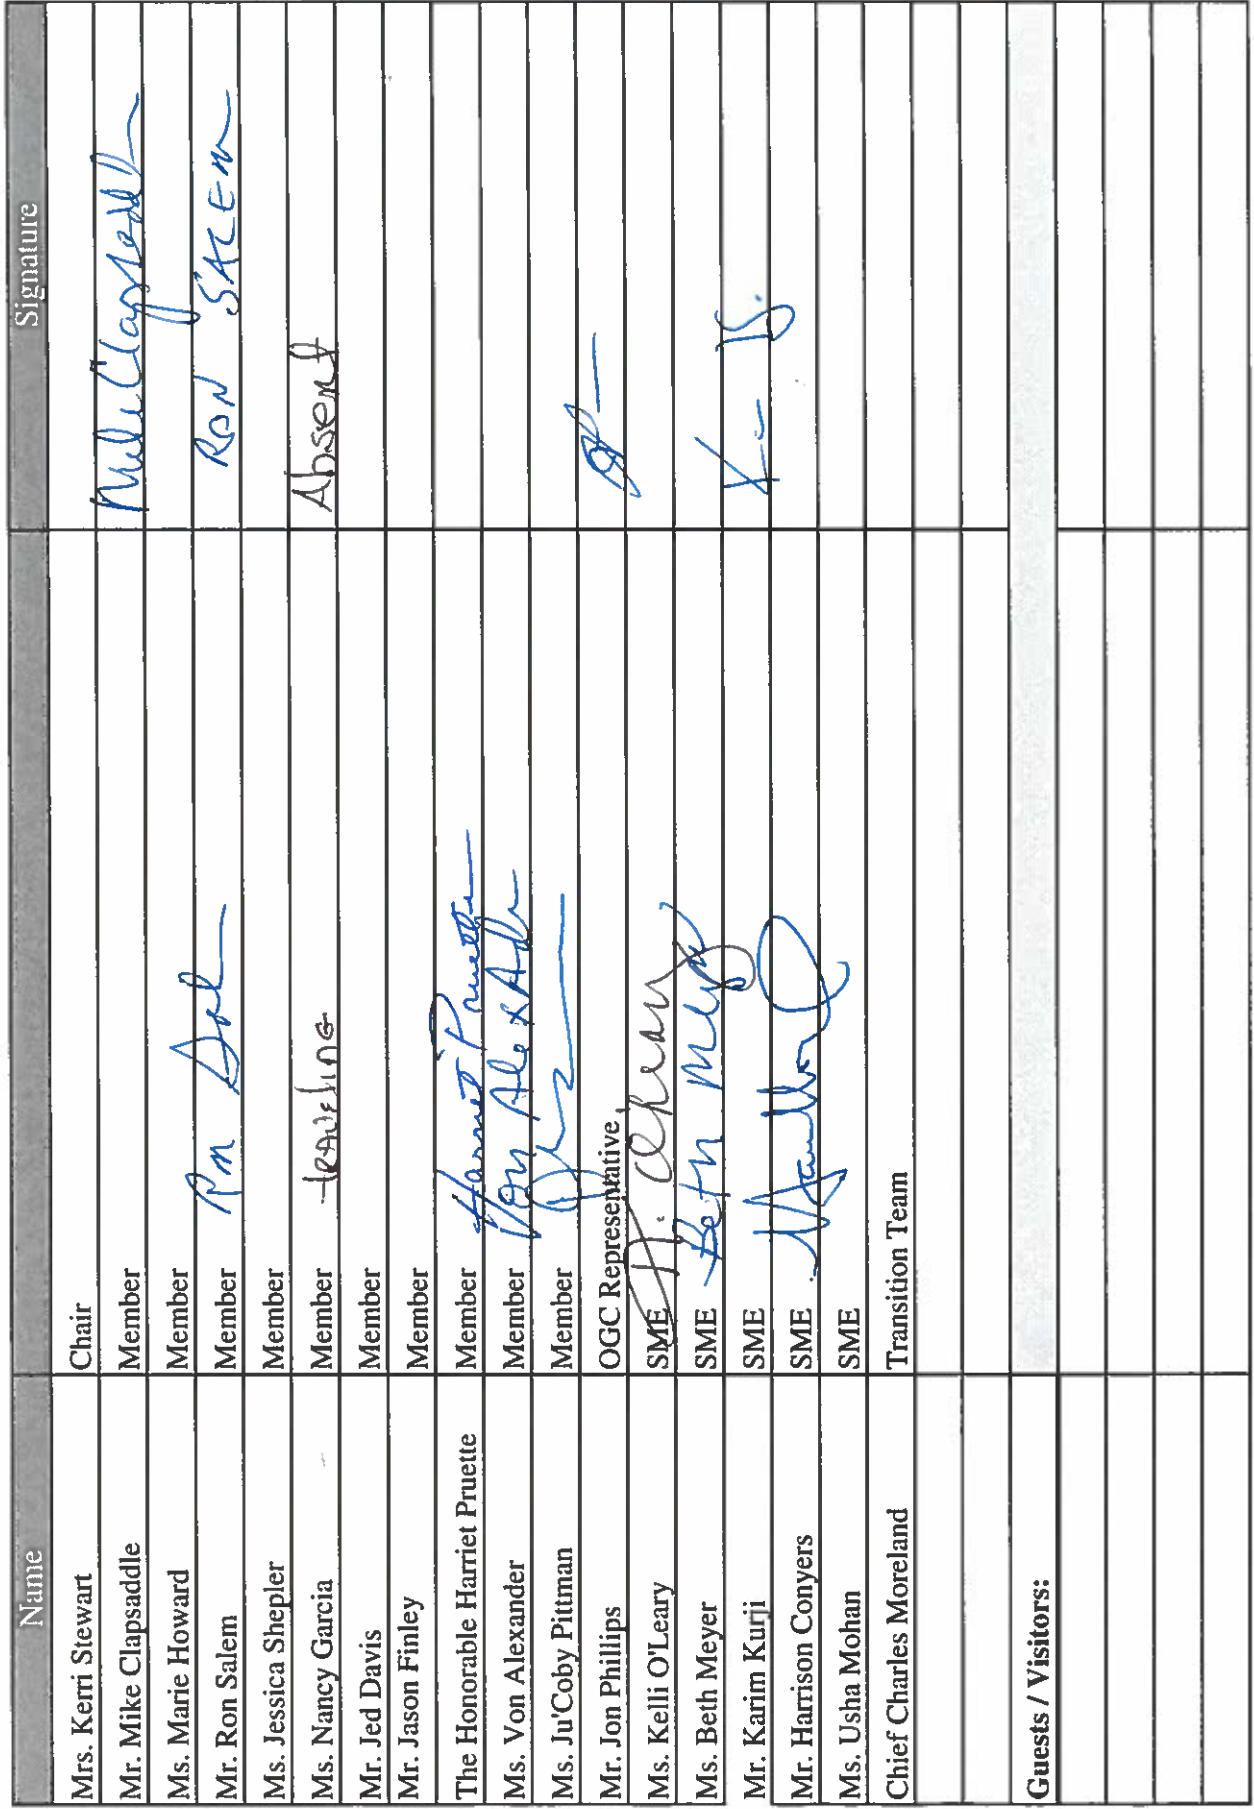 Name Signature
Mrs. Kerri Stewart Chair
Mr. Mike Clapsaddle Member Mike Clapsaddle
Ms. Marie Howard Member
Mr. Ron Salem Member RON SALEM
Ms. Jessica Shepler Member
Ms. Nancy Garcia Member traveling Absent
Mr. Jed Davis Member
Mr. Jason Finley Member
The Honorable Harriet Pruette Member Harriet Pruette
Ms. Von Alexander Member Von Alexander
Ms. Ju'Coby Pittman Member
Mr. Jon Phillips OGC Representative
Ms. Kelli O'Leary SME
Ms. Beth Meyer SME Beth Meyer
Mr. Karim Kurji SME
Mr. Harrison Conyers SME
Ms. Usha Mohan SME
Chief Charles Moreland Transition Team
Guests / Visitors: